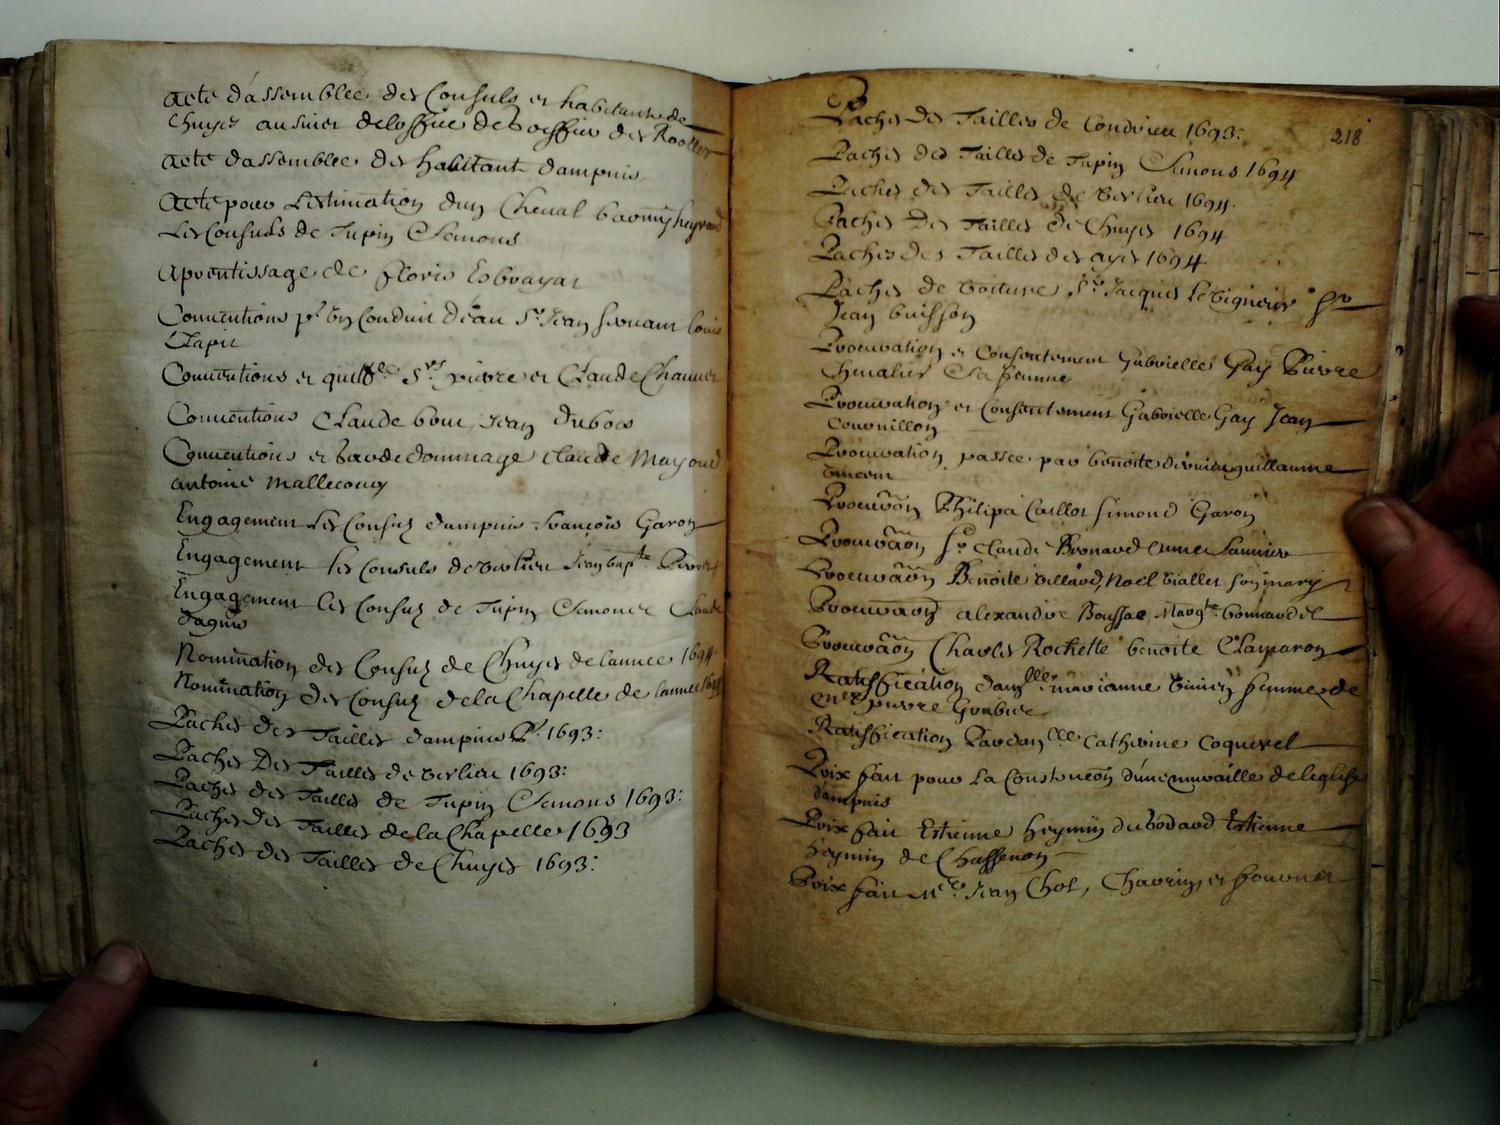 Acte d'assemblee des Consuls et habitants de
Chuyes au sujet de l'office de Greffier des Roolles
Acte dassemblee des habitant dampuis
Acte pour Lestimation dun Cheval
Les Consuls de Tupin Semons
Aprentissage de Floris Esbrayat
Conventions pr un Conduit d'eau Sr Jean Louis
Clapit
Conventions et quittce Srs pierre et Claude
Conventions Claude bour Jean Dubois
Conventions et dommage Claude
antoine Mallecour
Engagement Les Consuz dampuis francois Garon
Engagement les Consuls de Verlieu Jean bapte
Engagement les Consuz de Tupin Semons Claude
Nomination des Consuz de Chuyes de lannee 1694
Nomination des Consuz de la Chapelle de lannee 1694
Paches des Tailles dampuis 1693:
Paches Des Tailles de verlieu 1693:
Paches des Tailles de Tupin Semons 1693:
Paches des Tailles de la Chapelle 1693
Paches des Tailles de Chuyes 1693:
218
Paches Des Tailles de Condrieu 1693:
Paches des Tailles de Tupin Semons 1694
Paches des Tailles de Verlieu 1694
Paches Des Tailles de Chuyes 1694
Paches des Tailles des ayes 1694
Paches de voiture Sr Jacques Levigneur Sr
Jean buisson
Procuration et Consentement Gabrielle Gay Pierre
Chevalier Sa femme
Procuration et Consentement Gabrielle Gay Jean
Cournillon
Procuration passee par benoite guillaume
vincent
Procuraon Philipa Caillot Simond Garon
Procuraon Sr Claude Bernard Saunier
Procuraon Benoite Villard, Noel Viallet son mary
Procuraon alexandre Boussac Margte bonnardel
Procuraon Charles Rochette benoite Clamaron
Ratiffication damlle marianne femme de
pierre
Ratiffication Par damlle Catherine Coquerel
Prix fait pour La Constructon d'une muraille de leglise
d'ampuis
Prix fait Estienne heymin du bodard Estienne
heymin de Chassenon
Prix fait Mre Jean Chol, et